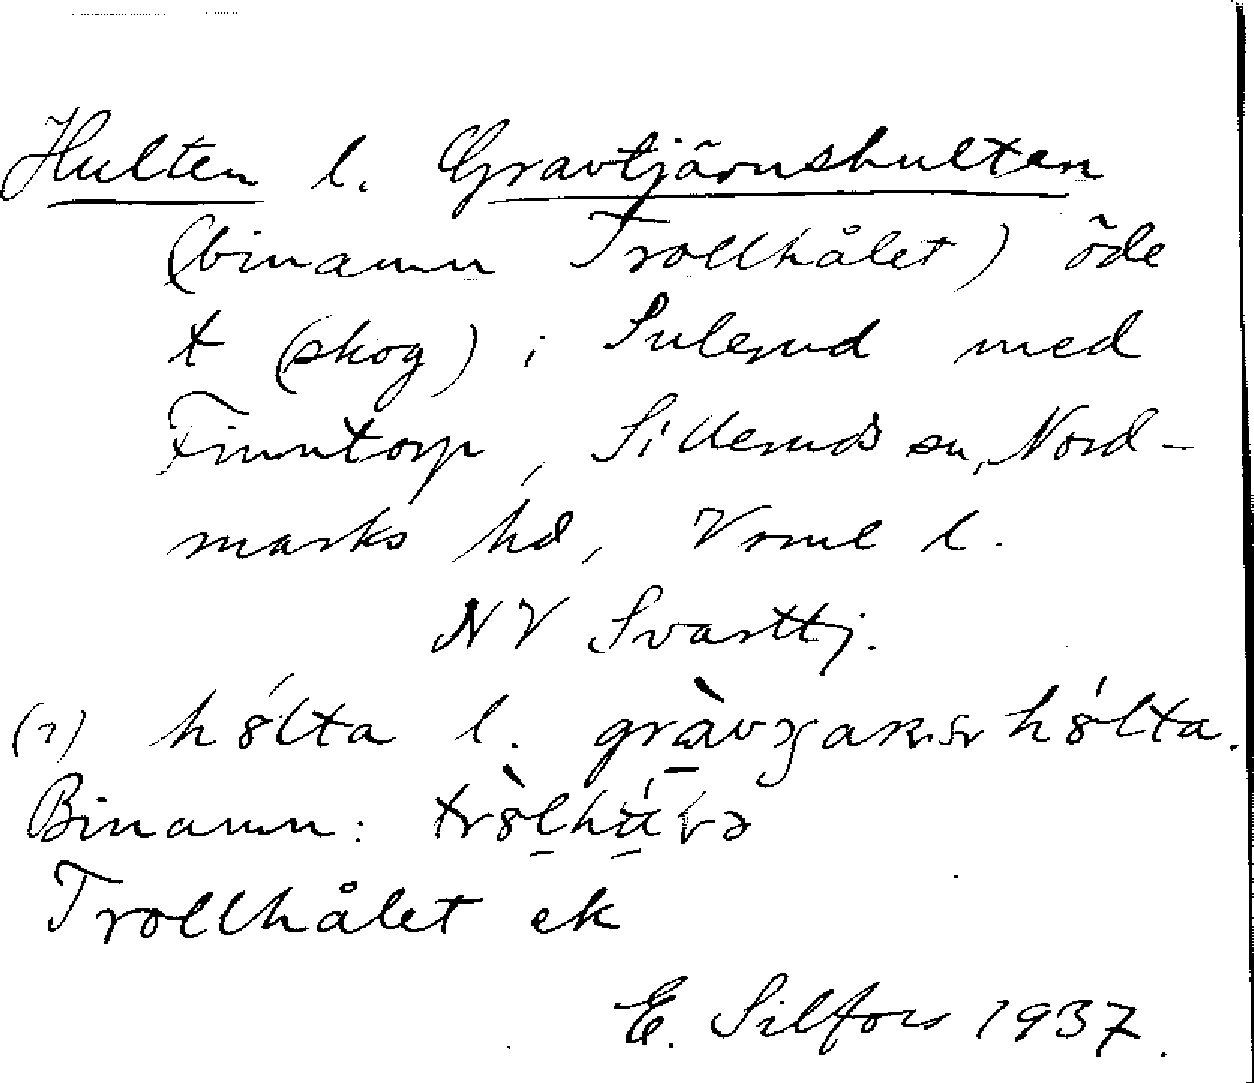 Hulten l. Gravtjärnshulten
(binamn Trollhålet) öde
t (skog) i Sulerud med
Finntorp, Silleruds sn, Nord-
marks hd, Vrml l.
NV Svarttj.
(1) hólta l.
Binamn:
Trollhålet ek
E. Silfors 1937.